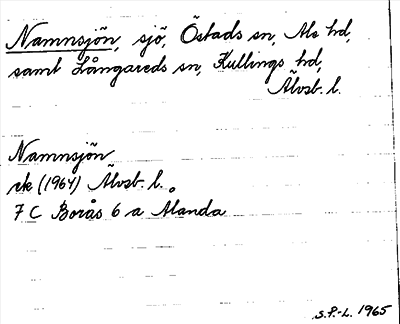 Namnsjön, sjö, Östads sn, Ale hd,
samt Långareds sn, Kullings hd,
Älvsb. l.
Namnsjön
ek (1964) Älvsb. l.
7 C Borås 6 a Alanda
S.P.-L. 1965